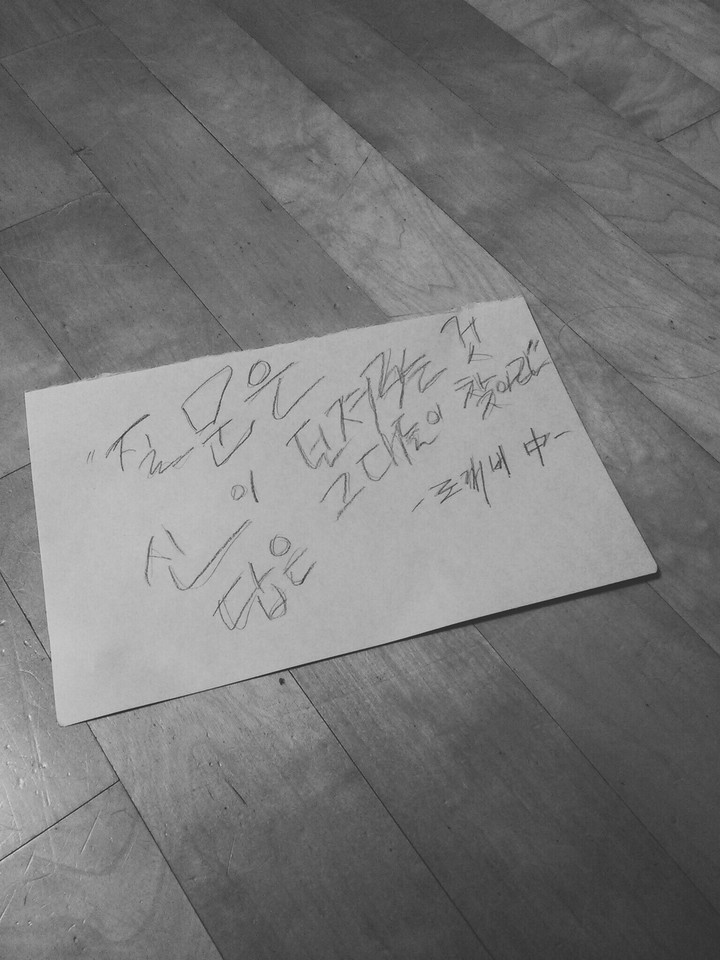 "질문은
신이 던져라는 것
답은 그대들이 찾아라"
-도깨비 中-